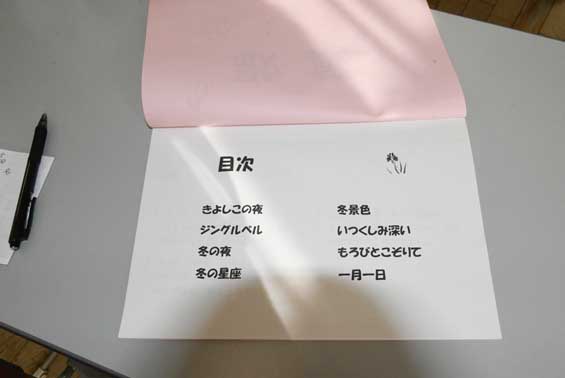 目次
きよしこの夜
ジングルベル
冬の夜
冬の星座
冬景色
いつくしみ深い
もろびとこぞりて
一月一日